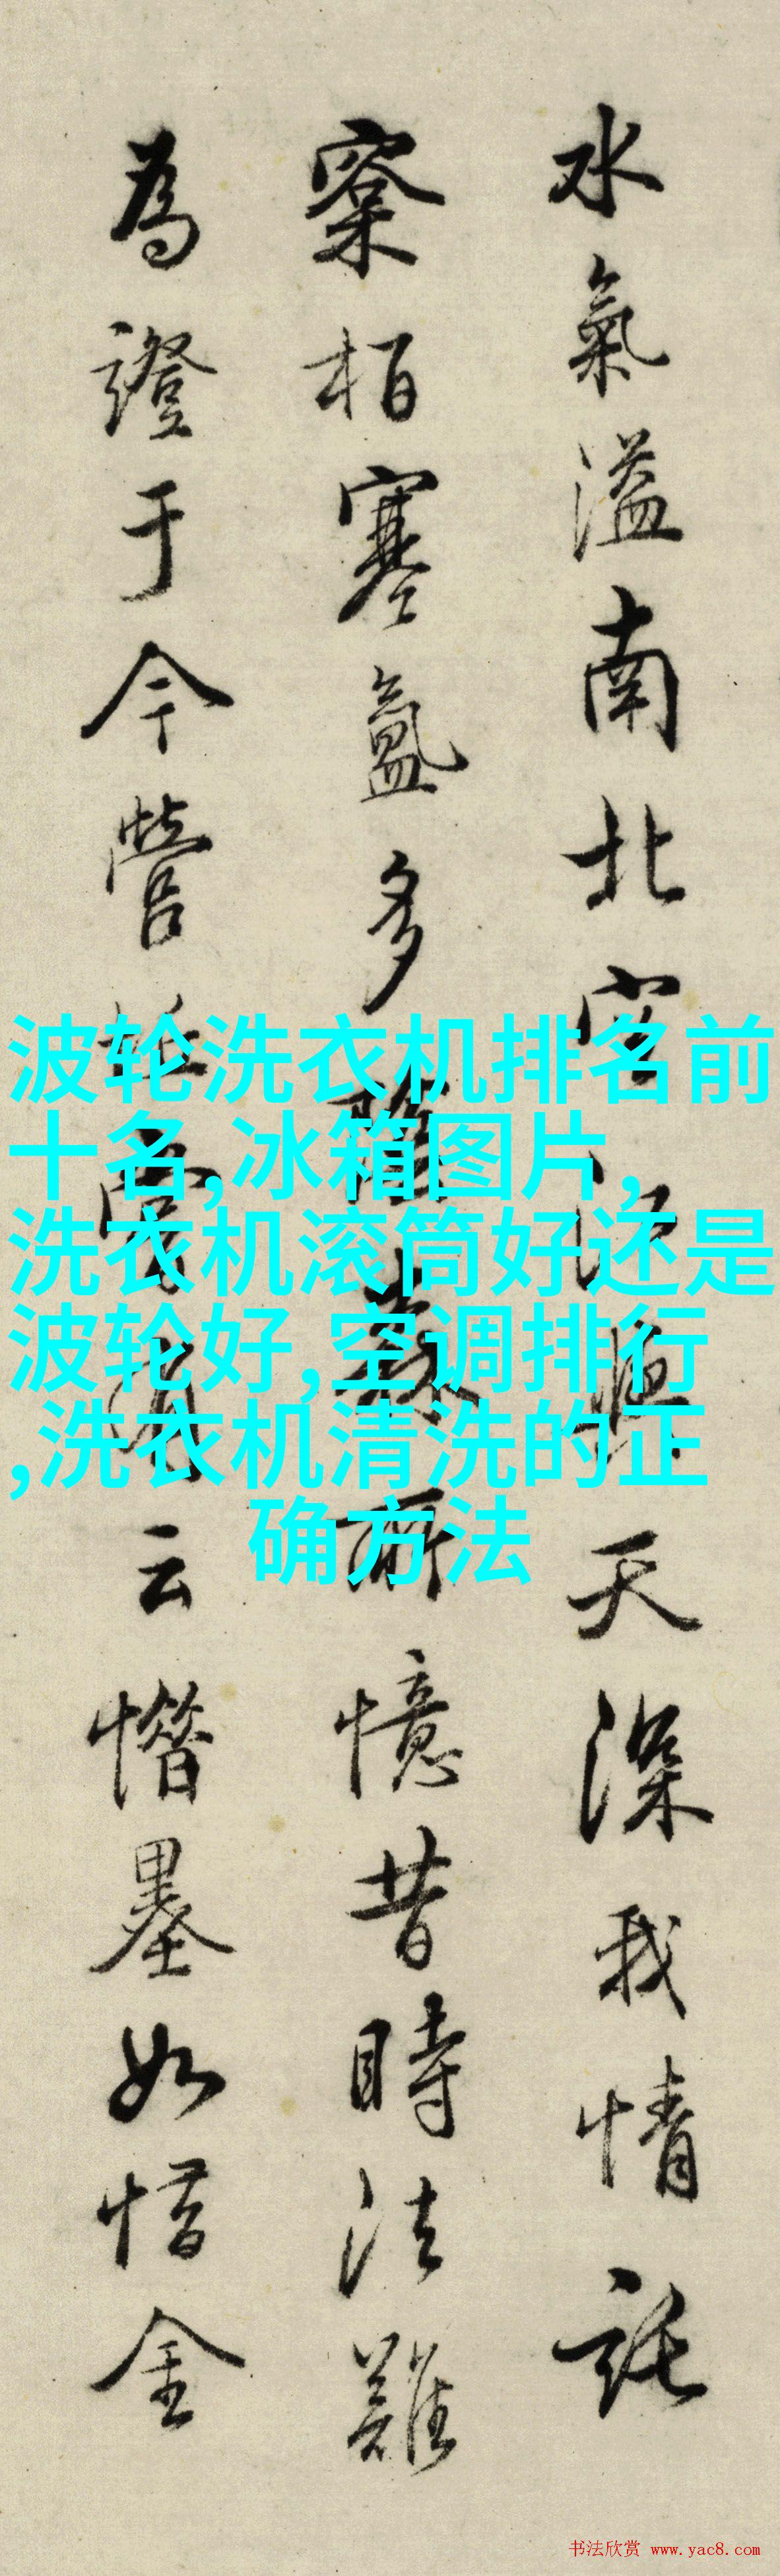 水氣溢南北空江與天深我情託
窠栢寒氳多
憶昔時法難
為證于今營
云惜墨如惜金
波轮洗衣机排名前
十名,冰箱图片,
洗衣机滚筒好还是
波轮好,空调排行
,洗衣机清洗的正
确方法
书法欣赏 www.yac8.com